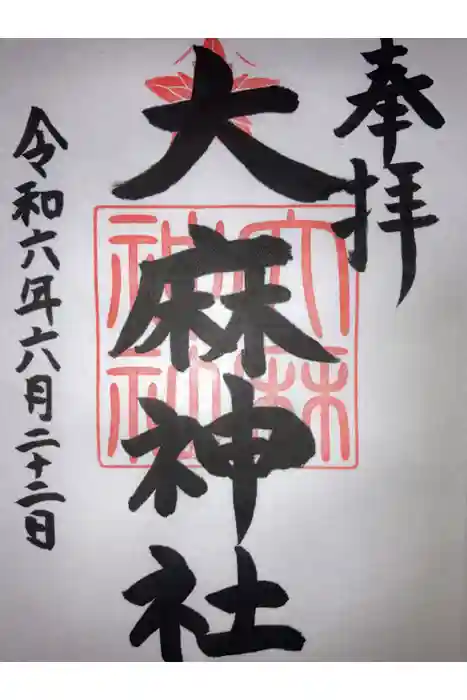 奉拝
大麻神社
令和六年六月二十二日
大麻
神社